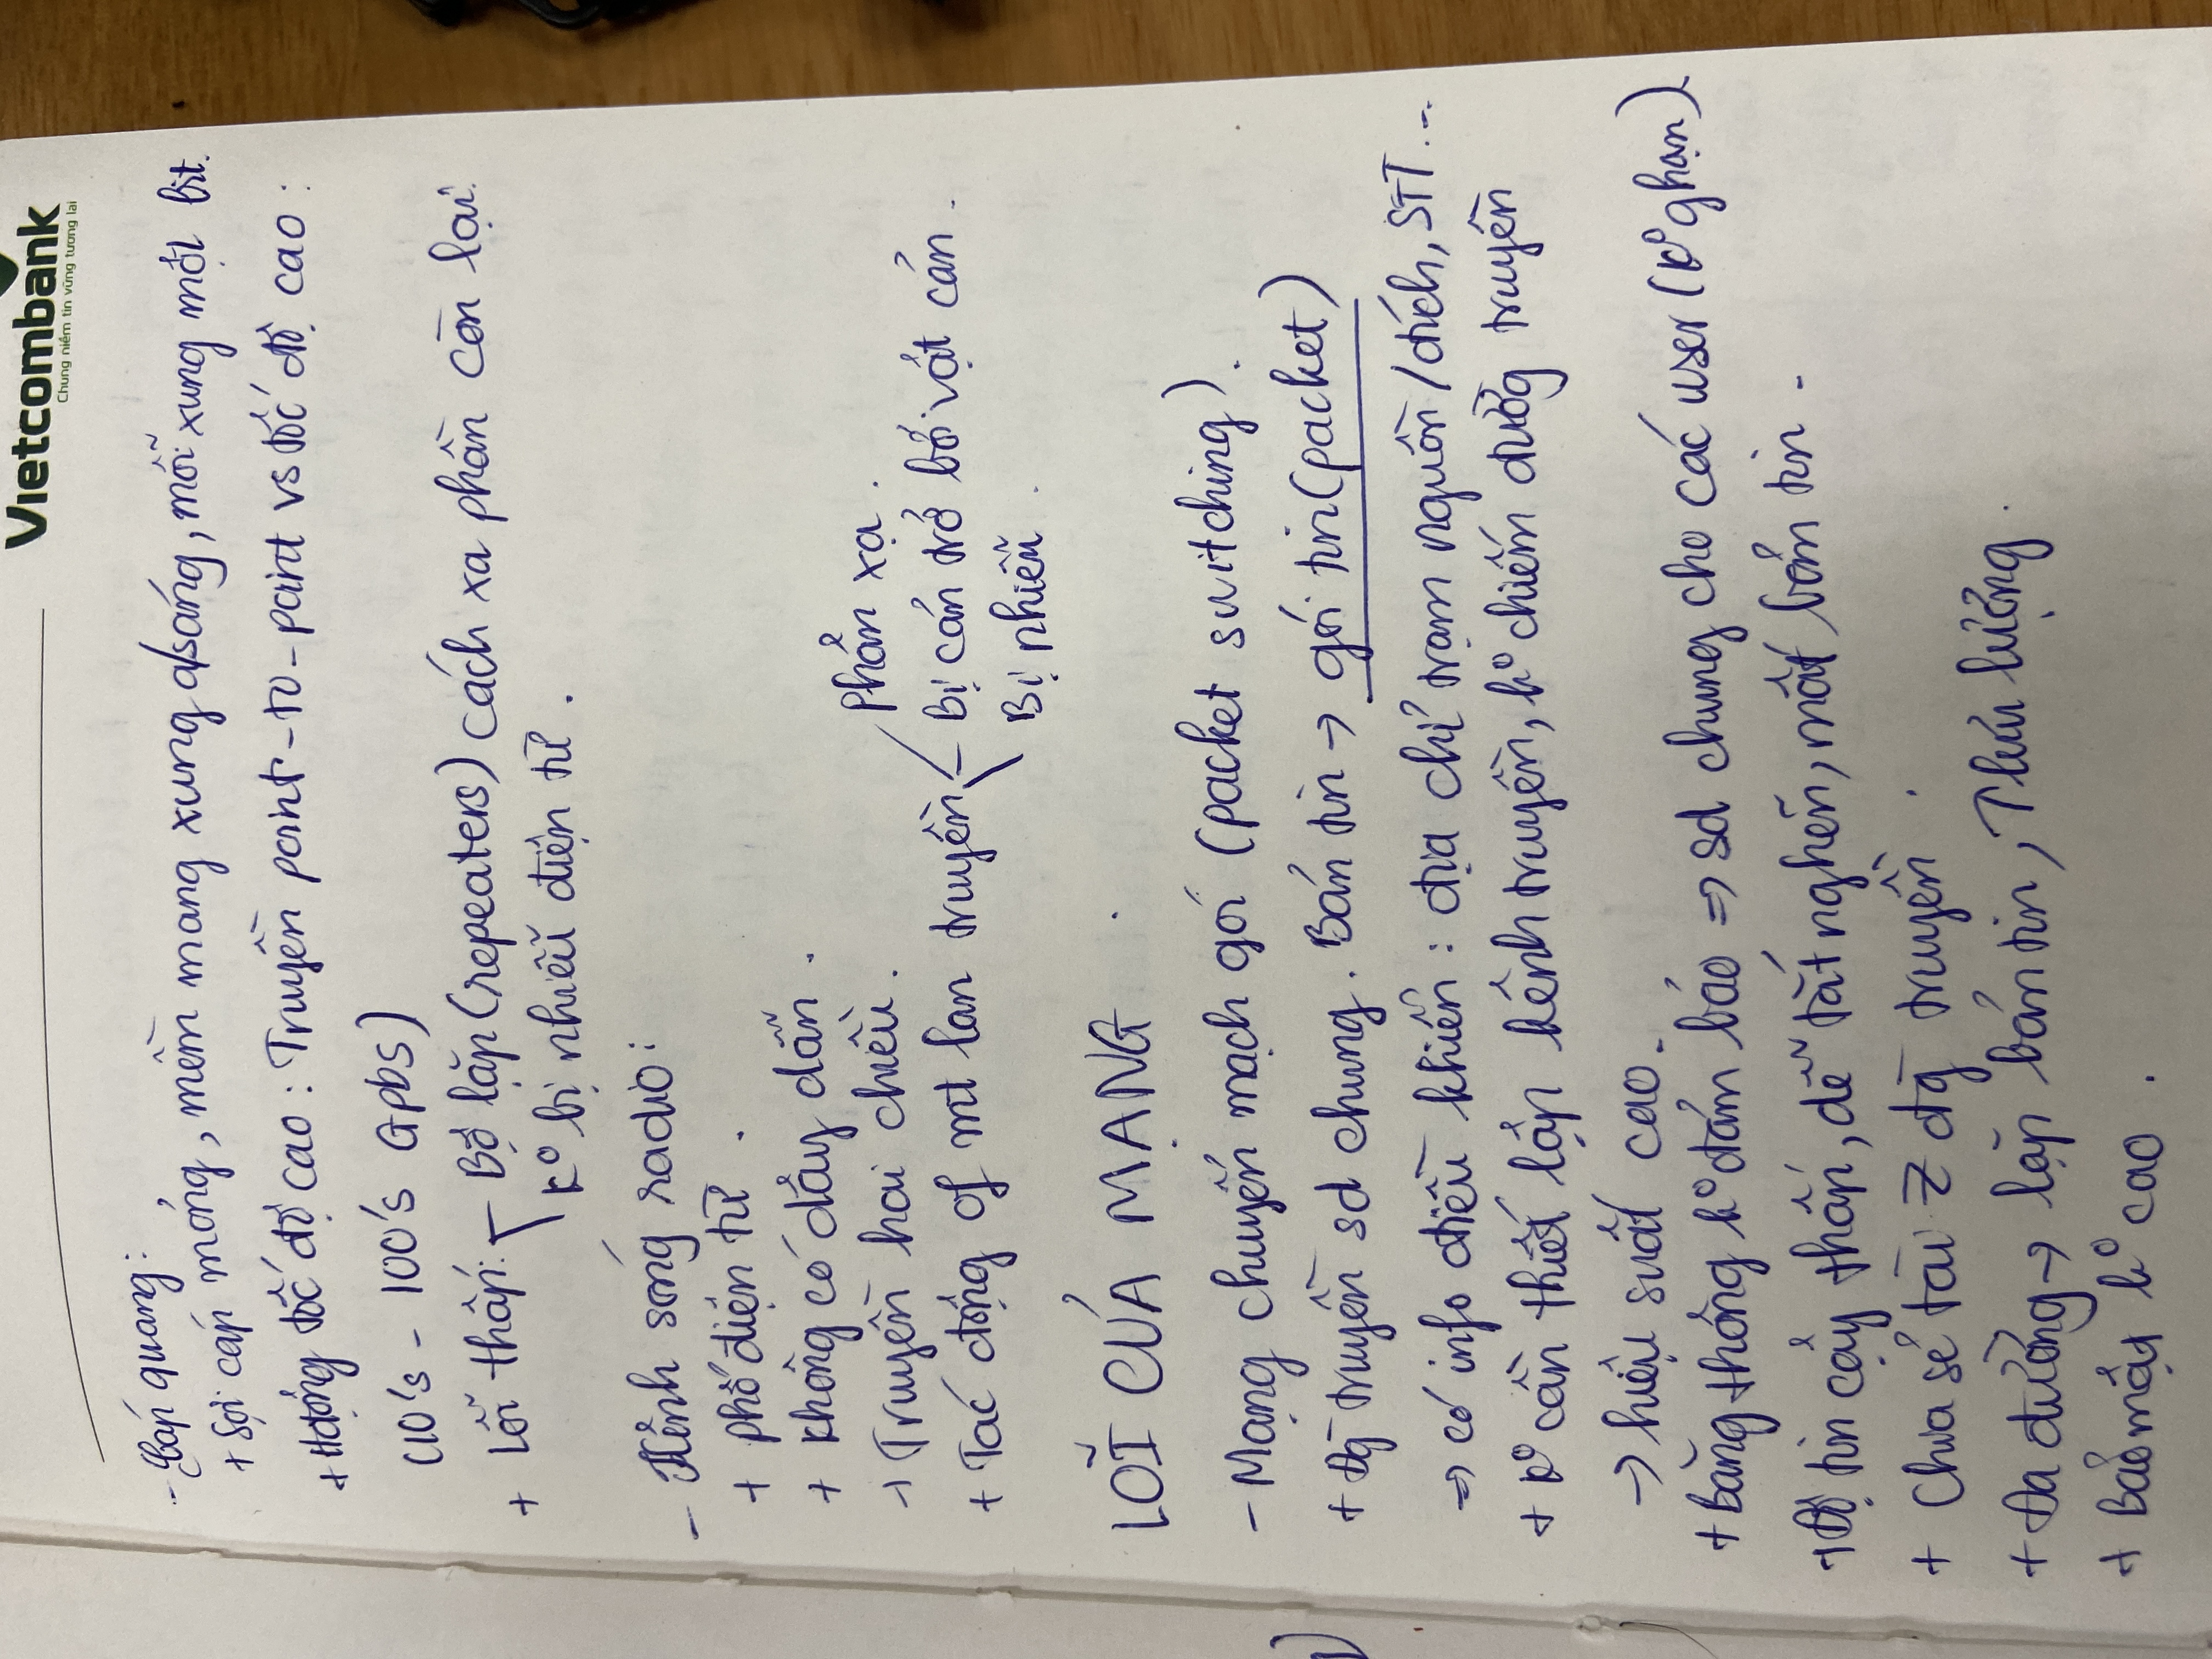 Vietcombank
Chung niềm tin vững tương lai
- Cáp quang:
+ Sợi cáp mỏng, mềm mang xung a/sáng, mỗi xung một bit.
+ Hđộng tốc độ cao : Truyền point-to-point vs tốc độ cao :
(10's - 100's Gpbs)
+ Lỗi thấp: - Bộ lặp (repeaters) cách xa phần còn lại.
k° bị nhiễu điện từ .
- Kênh sóng radio :
+ phổ điện từ .
+ Không có dây dẫn .
+ Truyền hai chiều .
phản xạ .
+ Tác động of mt lan truyền - Bị cản trở bởi vật cản .
Bị nhiễu .
LÕI CỦA MẠNG
- Mạng chuyển mạch gói (packet switching).
+ Đg̀ truyền sd chung . Bản tin → gói tin (packet)
⇒ có info điều khiển : địa chỉ trạm nguồn / đích, STT ...
+ k° cần thiết lập kênh truyền, k° chiếm đường truyền
→ hiệu suất cao .
+ Băng thông k° đảm bảo ⇒ sd chung cho các user (k° ghạn).
+ Độ tin cậy thấp, dễ tắt nghẽn, mất bản tin .
+ Chia sẻ tài z đg̀ truyền .
+ Đa đường → lặp bản tin, ↑ lưu lượng .
+ Bảo mật k° cao .